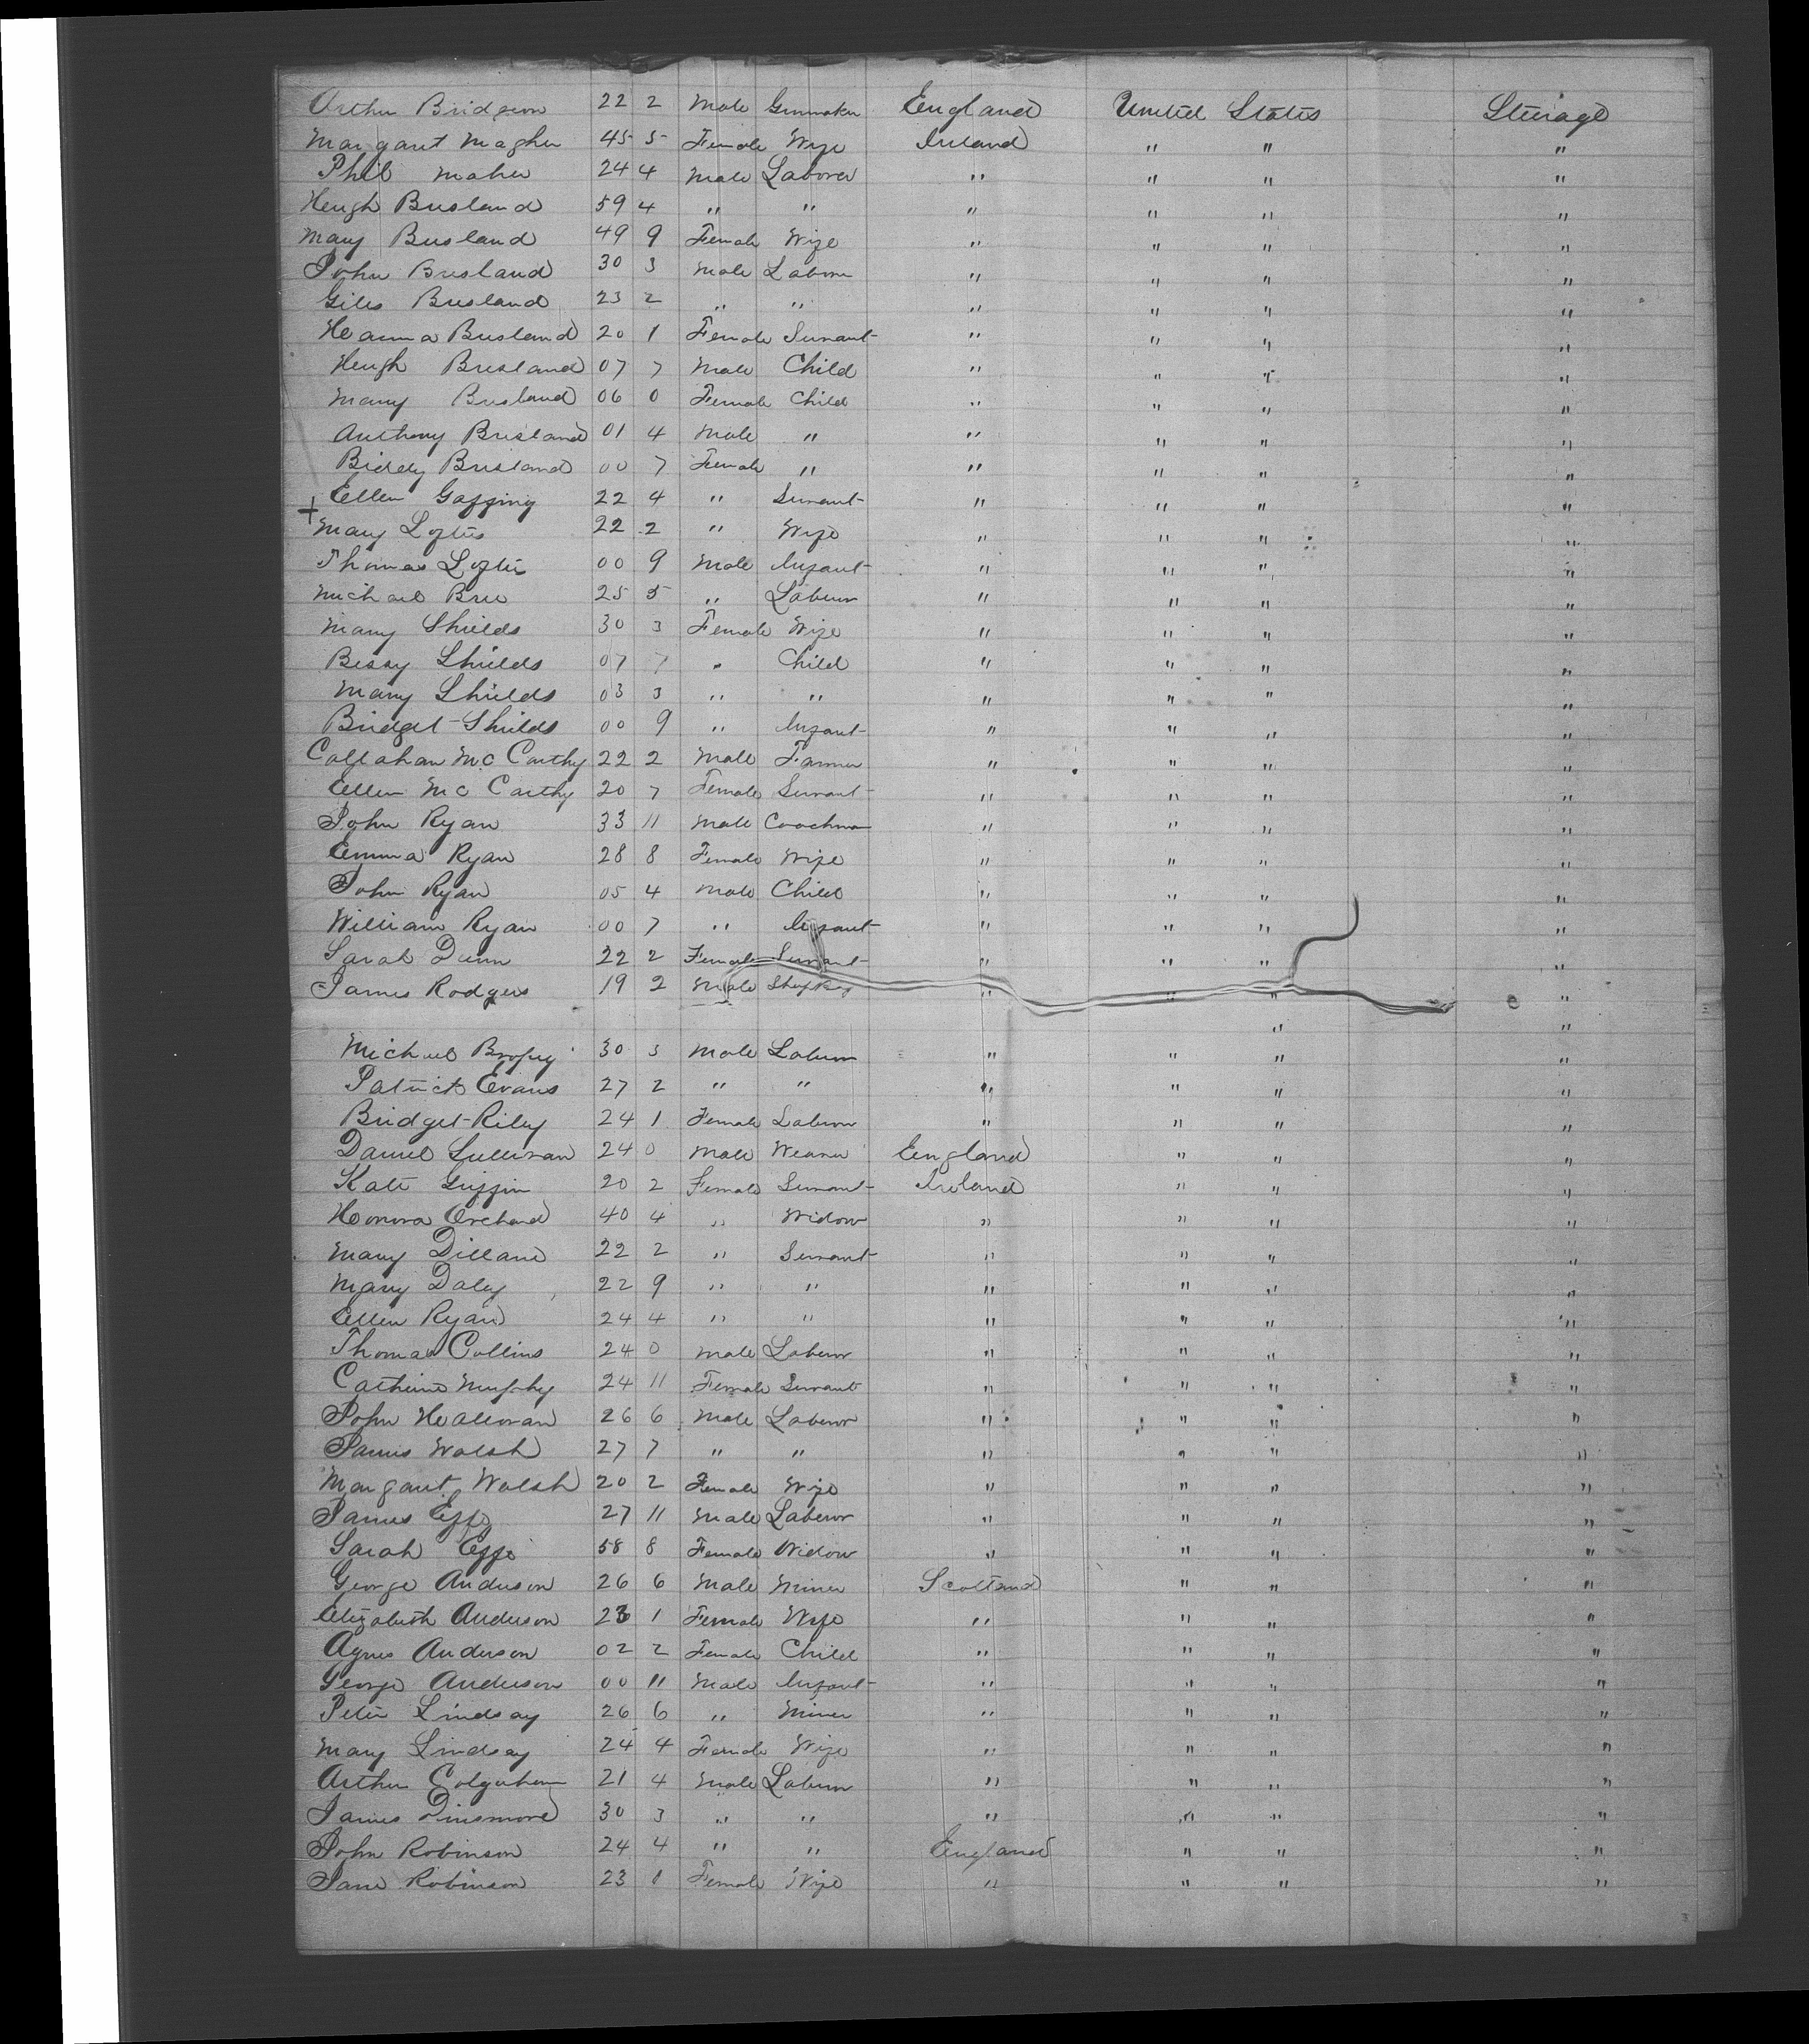 Arthur Bridgeon 22 2 Male Gunmaker England United States Steerage
Margaret Magher 45 5 Female Wife Ireland " " "
Phil Maher 24 4 Male Laborer " " " "
Hugh Bresland 59 4 " " " " " "
Mary Bresland 49 9 Female Wife " " " "
John Bresland 30 3 Male Laborer " " " "
Giles Bresland 23 2 " " " " " "
Hanna Bresland 20 1 Female Servant " " " "
Hugh Bresland 07 7 Male Child " " " "
Mary Bresland 06 0 Female Child " " " "
Anthony Bresland 01 4 Male " " " " "
Biddy Bresland 00 7 Female " " " " "
Ellen Gaffiny 22 4 " Servant " " " "
+ Mary Loftus 22 2 " Wife " " " "
Thomas Loftus 00 9 Male Infant " " " "
Michael Bree 25 5 " Laborer " " " "
Mary Shields 30 3 Female Wife " " " "
Bessy Shields 07 7 " Child " " " "
Mary Shields 03 3 " " " " " "
Bridget Shields 00 9 " Infant " " " "
Callahan Mc Carthy 22 2 Male Farmer " " " "
Ellen Mc Carthy 20 7 Female Servant " " " "
John Ryan 33 11 Male Coachman " " " "
Emma Ryan 28 8 Female Wife " " " "
John Ryan 05 4 Male Child " " " "
William Ryan 00 7 " Infant " " " "
Sarah Dunn 22 2 Female Servant " " " "
James Rodgers 19 2 Male " " " "
" "
Michael Brophy 30 3 Male Laborer " " " "
Patrick Evans 27 2 " " " " " "
Bridget Riley 24 1 Female Laborer " " " "
Daniel Sullivan 24 0 Male Weaver England " " "
Kate Griffin 20 2 Female Servant Ireland " " "
Honora Orchard 40 4 " Widow " " " "
Mary Dillane 22 2 " Servant " " " "
Mary Daley 22 9 " " " " " "
Ellen Ryan 24 4 " " " " " "
Thomas Collins 24 0 Male Laborer " " " "
Catherine Murphy 24 11 Female Servant " " " "
John Halloran 26 6 Male Laborer " " " "
James Walsh 27 7 " " " " " "
Margaret Walsh 20 2 Female Wife " " " "
James Effe 27 11 Male Laborer " " " "
Sarah Effe 58 8 Female Widow " " " "
George Anderson 26 6 Male Miner Scotland " " "
Elizabeth Anderson 23 1 Female Wife " " " "
Agnes Anderson 02 2 Female Child " " " "
George Anderson 00 11 Male Infant " " " "
Peter Lindsay 26 6 " Miner " " " "
Mary Lindsay 24 4 Female Wife " " " "
Arthur Colquhoun 21 4 Male Laborer " " " "
James Dinsmore 30 3 " " " " " "
John Robinson 24 4 " " England " " "
Jane Robinson 23 1 Female Wife " " " "